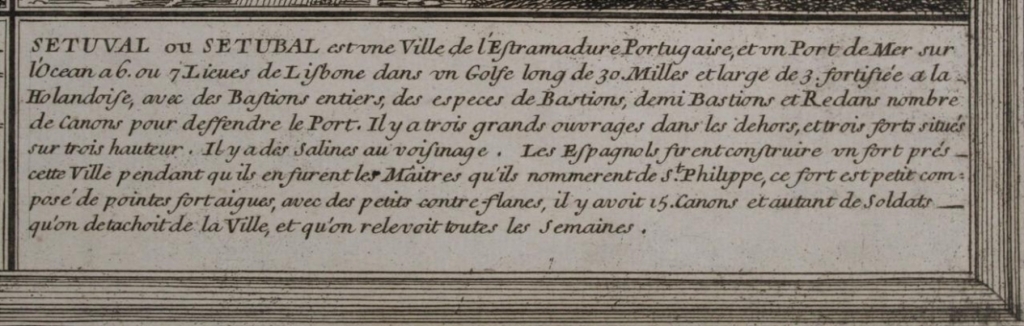 SETUVAL ou SETUBAL est vne Ville de l'Estramadure Portugaise, et vn Port de Mer sur
l'Ocean a 6. ou 7 Lieues de Lisbone dans vn Golfe long de 30. Milles et large de 3. fortifiée a la
Holandoise, avec des Bastions entiers, des especes de Bastions, demi Bastions et Redans nombre
de Canons pour deffendre le Port. Il y a trois grands ouvrages dans les dehors, et trois forts situés
sur trois hauteur. Il y a des Salines au voisinage. Les Espagnols firent construire vn fort prés
cette Ville pendant qu'ils en furent les Maitres qu'ils nommerent de St. Philippe, ce fort est petit com=
posé de pointes fort aigues, avec des petits contre-flancs, il y avoit 15. Canons et autant de Soldats
qu'on detachoit de la Ville, et qu'on relevoit toutes les Semaines.